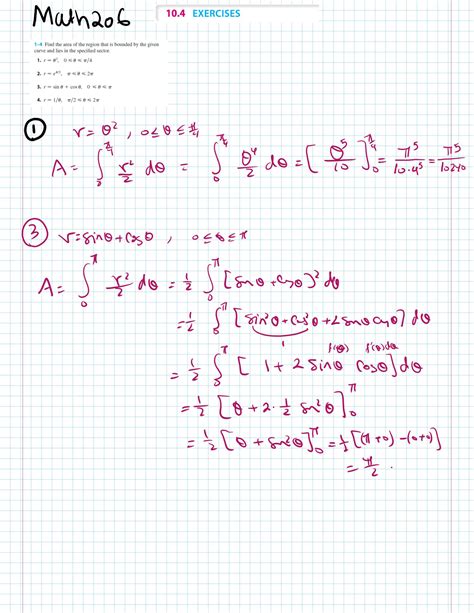 Math206
10.4 EXERCISES
1–4 Find the area of the region that is bounded by the given
curve and lies in the specified sector.
1. r = θ², 0 ≤ θ ≤ π/4
2. r = e^{θ/2}, π ≤ θ ≤ 2π
3. r = sin θ + cos θ, 0 ≤ θ ≤ π
4. r = 1/θ, π/2 ≤ θ ≤ 2π
① r = θ², 0 ≤ θ ≤ π/4
A = ∫_0^{π/4} r²/2 dθ = ∫_0^{π/4} θ⁴/2 dθ = [θ⁵/10]_0^{π/4} = π⁵/(10·4⁵) = π⁵/10240
③ r = sinθ + cosθ, 0 ≤ θ ≤ π
A = ∫_0^π r²/2 dθ = 1/2 ∫_0^π [sinθ + cosθ]² dθ
= 1/2 ∫_0^π [sin²θ + cos²θ + 2 sinθ cosθ] dθ
1 f(θ) f'(θ)dθ
= 1/2 ∫_0^π [1 + 2 sinθ cosθ] dθ
= 1/2 [θ + 2·1/2 sin²θ]_0^π
= 1/2 [θ + sin²θ]_0^π = 1/2 [(π+0) − (0+0)]
= π/2 .